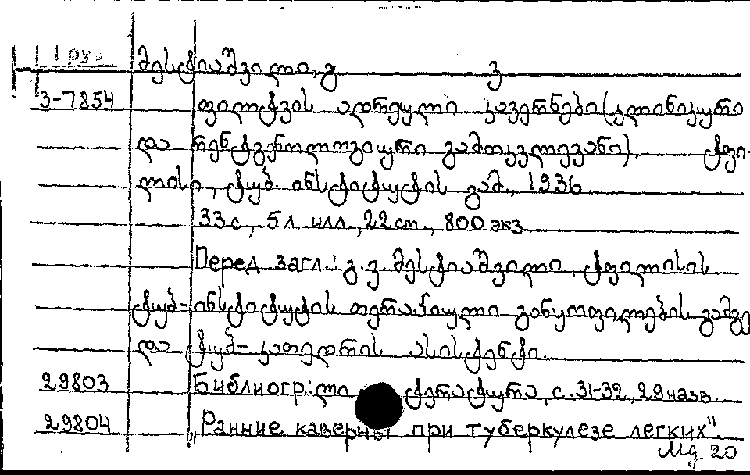 1 груз.
მესტიაშვილი, გ ვ
3-7854 ფილტვის ადრეული კავერნები (კლინიკური
და რენტგენოლოგიური გამოკვლევანი). ტფი-
ლისი, ტუბ ინსტიტუტის გამ., 1936
33 с., 5 л. илл., 22 см., 800 экз
Перед загл.: გ. ვ. მესტიაშვილი, ტფილისის
ტუბ-ინსტიტუტის თერაპიული განყოფილების გამგე
და ტუბ-კათედრის ასისტენტი.
29803 Библиогр: ლი ტერატურა, с. 31-32, 29 назв.
29804 "Ранние каверны при туберкулезе легких"
Мд. 20